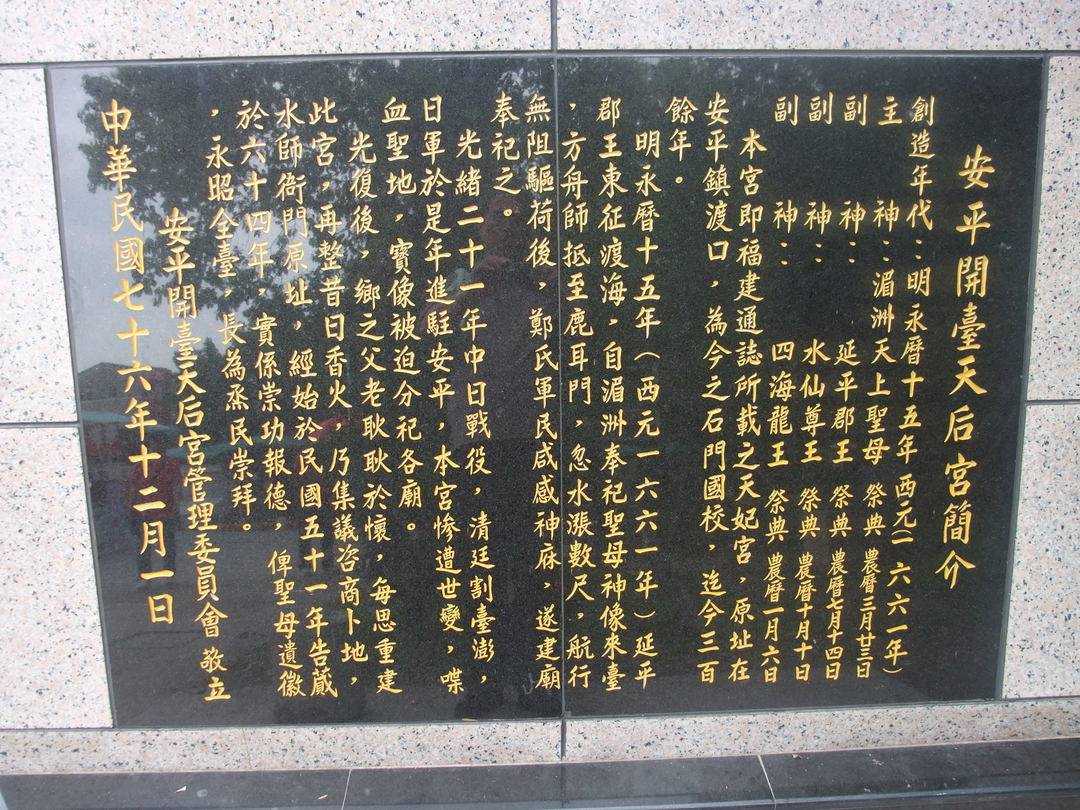 安平開臺天后宮簡介
創造年代：明永曆十五年西元(一六六一年)
主　神：湄洲天上聖母　祭典　農曆三月廿三日
副　神：延平郡王　祭典　農曆七月十四日
副　神：水仙尊王　祭典　農曆十月十日
副　神：四海龍王　祭典　農曆一月六日
本宮即福建通誌所載之天妃宮，原址在
安平鎮渡口，為今之石門國校，迄今三百
餘年。
明永曆十五年(西元一六六一年)延平
郡王東征渡海，自湄洲奉祀聖母神像來臺
，方舟師抵至鹿耳門，忽水漲數尺，航行
無阻驅荷後，鄭氏軍民咸感神庥，遂建廟
奉祀之。
光緒二十一年中日戰役，清廷割臺澎，
日軍於是年進駐安平，本宮慘遭世變，喋
血聖地，寶像被迫分祀各廟。
光復後，鄉之父老耿耿於懷，每思重建
此宮，再整昔日香火，乃集議咨商卜地，
水師衙門原址，經始於民國五十一年告蕆
於六十四年，實係崇功報德，俾聖母遺徽
，永昭全臺，長為烝民崇拜。
安平開臺天后宮管理委員會　敬立
中華民國七十六年十二月一日